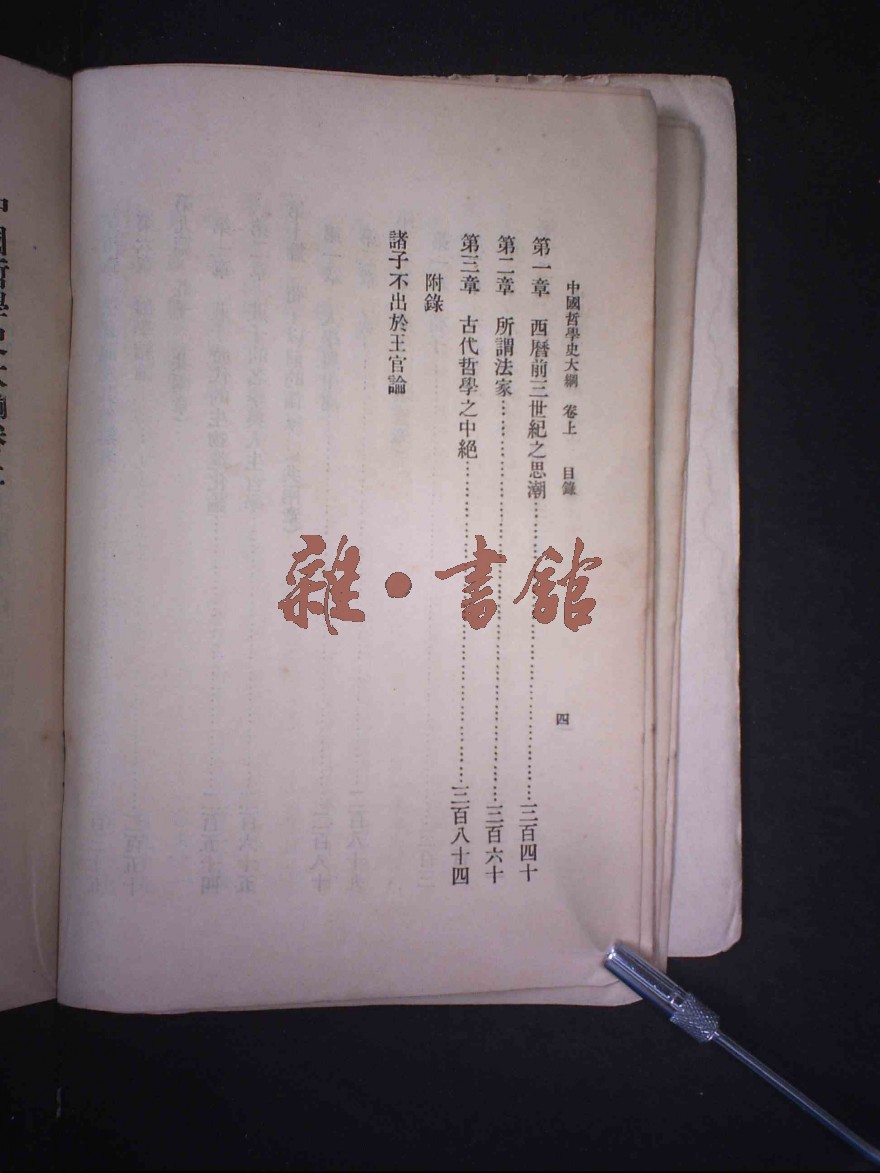 中國哲學史大綱 卷上 目錄 四
第一章 西曆前三世紀之思潮……三百四十
第二章 所謂法家……三百六十
第三章 古代哲學之中絕……三百八十四
附錄
諸子不出於王官論
雜·書館